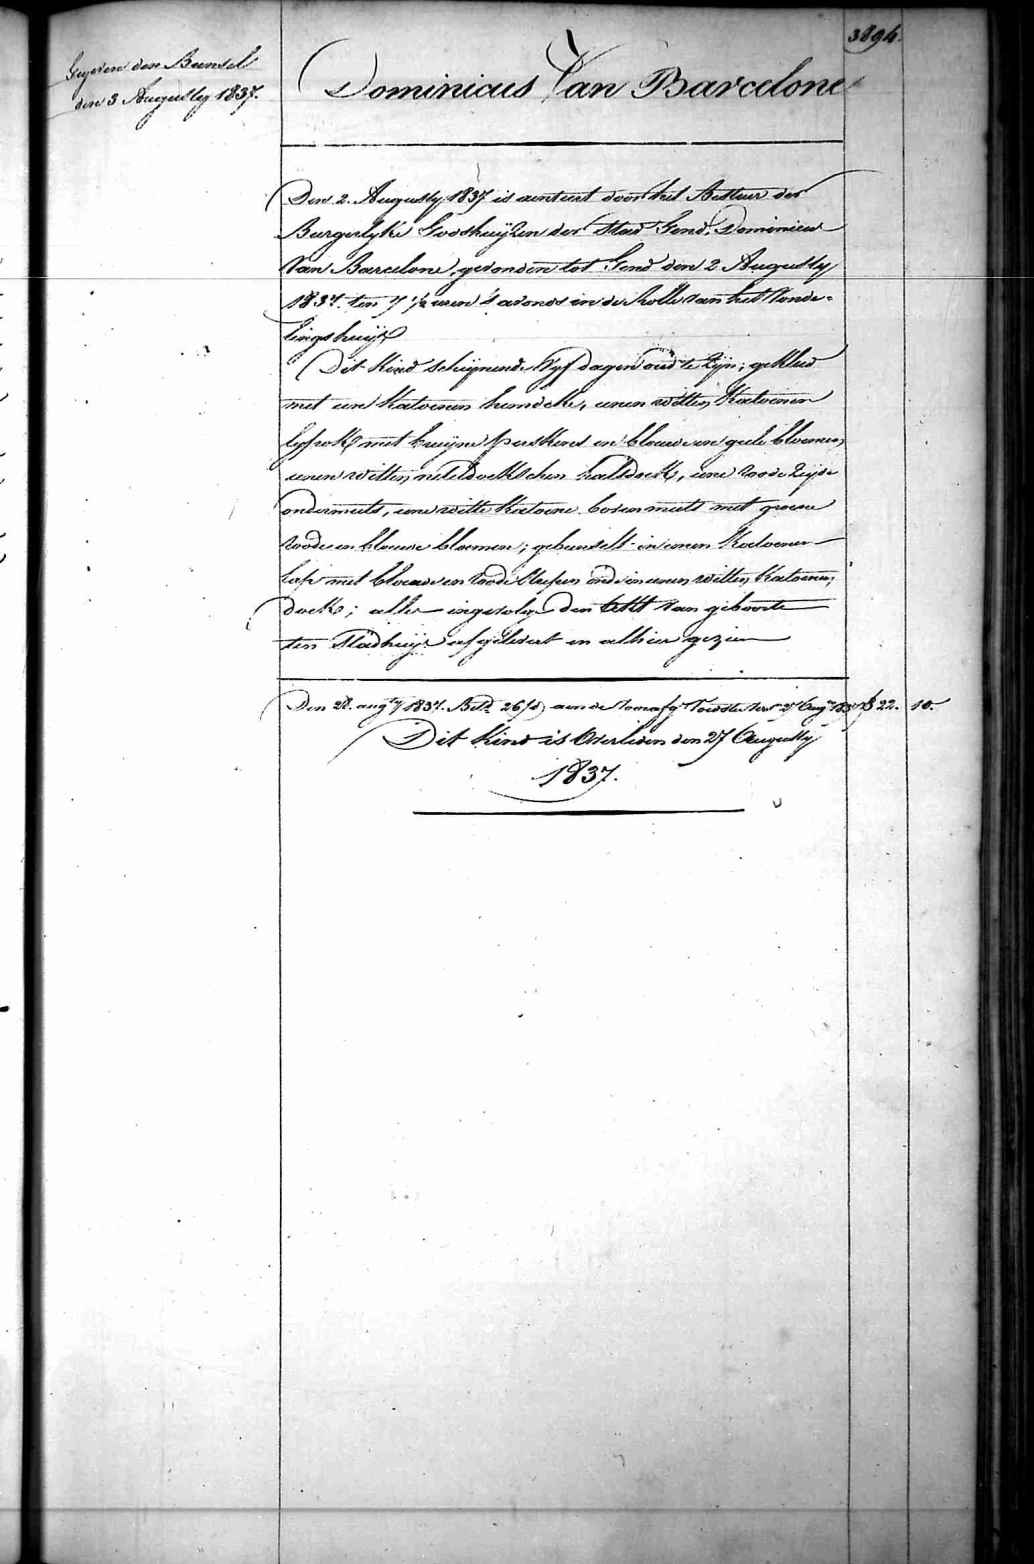 3894.
Gegeven den Bunsel
den 3 Augusty 1837.
Dominicus Van Barcelone
Den 2. Augusty 1837 is aenveert door het Bestuer der
Burgerlyke Godshuyzen der Stad Gend, Dominicus
Van Barcelone, gevonden tot Gend den 2 Augusty
1837. ten 7 1/2 uren 's avonds in de Rolle van het Vonde-
lingshuys
Dit Kind schynende Vyf dagen oud te Zyn; gekleed
met een Katoenen hemdeke, eenen witten Katoenen
lyfrok met bruyne perskens en blauwe en geele bloemen,
eenen witten neteldoekschen halsdoek, eene roode Zyde
ondermuts, eene witte Katoene bovenmuts met groene
roode en blauwe bloemen; gebunselt in eenen Katoenen
lap met blauwe en roode strepen ende in eenen witten Katoenen
doek; alles ingevolge den akt van geboorte
ten Stadhuyse afgelevert en alhier gezien
Den 28. augty 1837. Betd 26 d aen de Voedster tot 27 Augty 1837 22. 10.
Dit Kind is Overleden den 27 Augusty
1837.